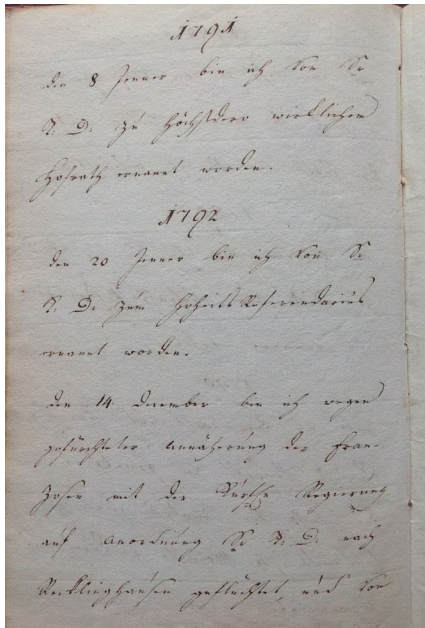 1791
den 8 Jenner bin ich von Sr
K. D. zu höchstdero wirklichen
Hofrath ernannt worden.
1792
den 20 Jenner bin ich von Sr
K. D. zum Hoheits Referendarius
ernannt worden.
den 14 December bin ich wegen
gefürchteter Annäherung der Fran-
zosen mit der Regierung
auf Anordnung Sr K. D. nach
Recklinghausen geflüchtet, und von